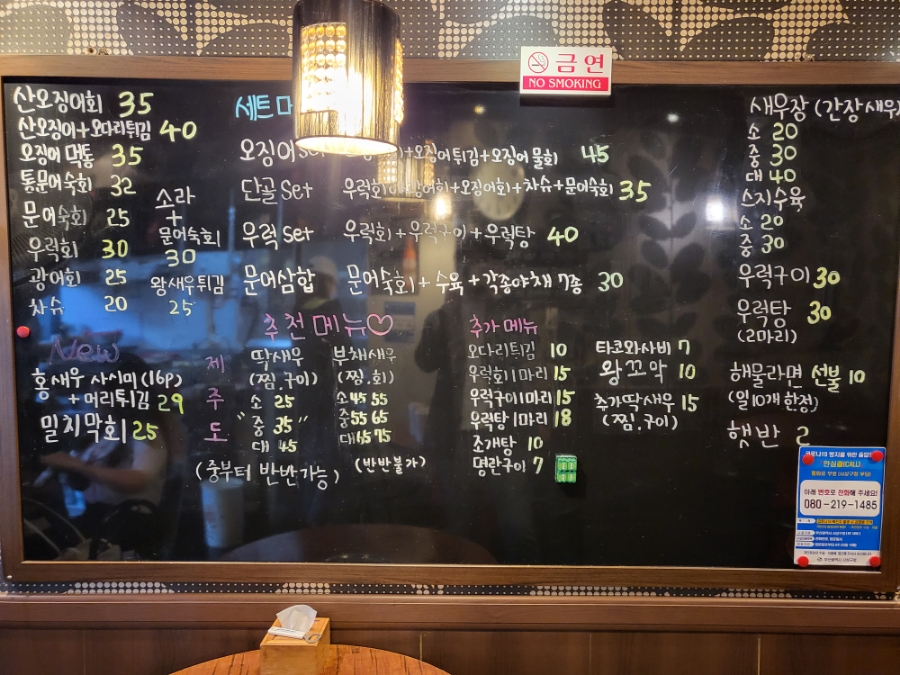 금연
NO SMOKING
산오징어회 35
산오징어+오다리튀김 40
오징어 먹통 35
통문어숙회 32
문어숙회 25
우럭회 30
광어회 25
차슈 20
소라
+
문어숙회
30
왕새우튀김
25
세트메
오징어set +오징어튀김+오징어 물회 45
단골 Set 우럭회 광어회+오징어회+차슈+문어숙회 35
우럭 Set 우럭회+우럭구이+우럭탕 40
문어삼합 문어숙회+수육+각종야채 7종 30
New
홍새우 사시미(16p)
+머리튀김 29
밀치막회 25
추천메뉴♡
제주도
딱새우
(찜.구이)
소 25
"중 35"
대 45
(중부터 반반가능)
부채새우
(찜.회)
소 45 55
중 55 65
대 65 75
(반반불가)
추가메뉴
오다리튀김 10
우럭회 1마리 15
우럭구이 1마리 15
우럭탕 1마리 18
조개탕 10
명란구이 7
타코와사비 7
왕꼬막 10
추가딱새우 15
(찜.구이)
새우장 (간장새우)
소 20
중 30
대 40
스지수육
소 20
중 30
우럭구이 30
우럭탕 30
(2마리)
해물라면 선불 10
(일10개 한정)
햇반 2
안심콜(CALL)
아래 번호로 전화해 주세요!
080-219-1485